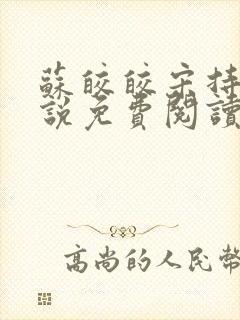 蘇皎皎宋持
說免費閱讀
高尚的人民幣